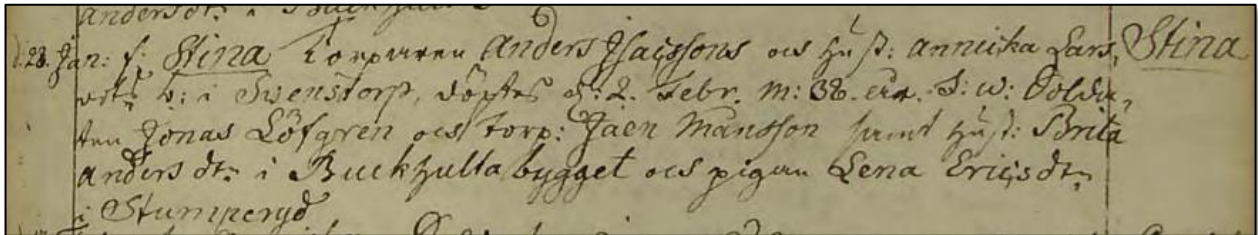 Andersdtr i
d. 28. Jan: f: Stina Torparen Anders Jsacssons och Hust: annicka Lars, Stina
dotts b: i Swenstorp, döptes d: 2. Febr. M: 38. S: w: Solda,
ten Jonas Löfgren och torp: Jaen Månsson samt Hust: Brita
anders dtr i Buckhultabygget och pigan Lena Ericsdtr
i Stumperyd